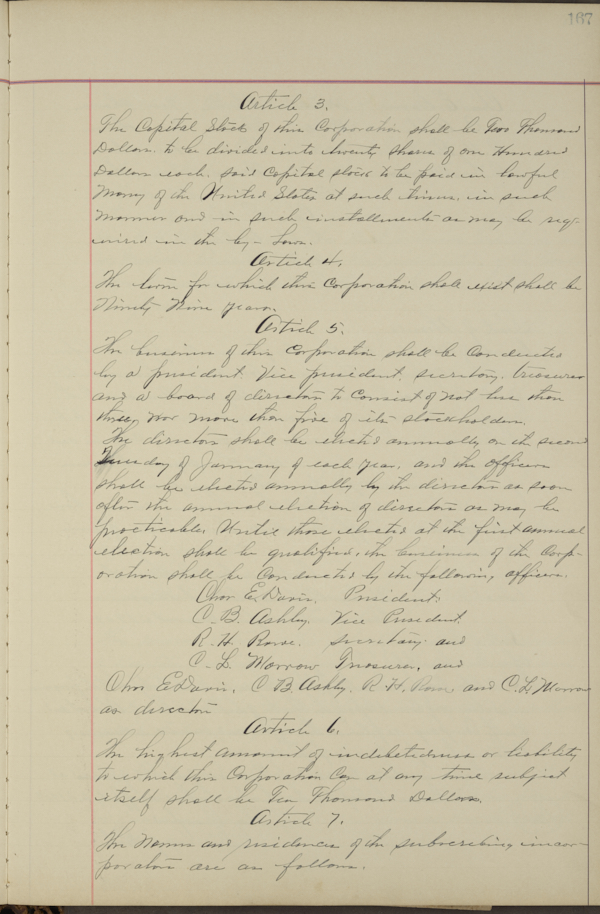 167
Article 3.
The Capital Stock of this Corporation shall be Two Thousand
Dollars. to be divided into twenty shares of one Hundred
Dollars each. said Capital stock to be paid in lawful
Money of the United States at such times, in such
manner and in such installments as may be req-
uired in the by-Laws.
Article 4.
The term for which this Corporation shall exist shall be
Ninety Nine years.
Article 5.
The business of this Corporation shall be Conducted
by a president. Vice president. secretary, treasurer
and a board of directors to consist of not less than
three, nor more than five of its stockholders.
The directors shall be elected annually on the second
of January of each year, and the officers
shall be elected annually by the directors as soon
after the annual election of directors as may be
practicable, Until those elected at the first annual
election shall be qualified, the business of the Corp-
oration shall be Conducted by the following officers.
Chas E. Davis, President.
C. B. Ashley, Vice President.
R. H. Rowe. Secretary. and
C. L. Morrow Treasurer, and
Chas E Davis, C B. Ashley, R. H. Rowe, and C. L. Morrow
as directors
Article 6.
The highest amount of indebtedness or liability
to which this Corporation Can at any time subject
itself shall be Ten Thousand Dollars.
Article 7.
The Names and residences of the subscribing incor-
porators are as follows.